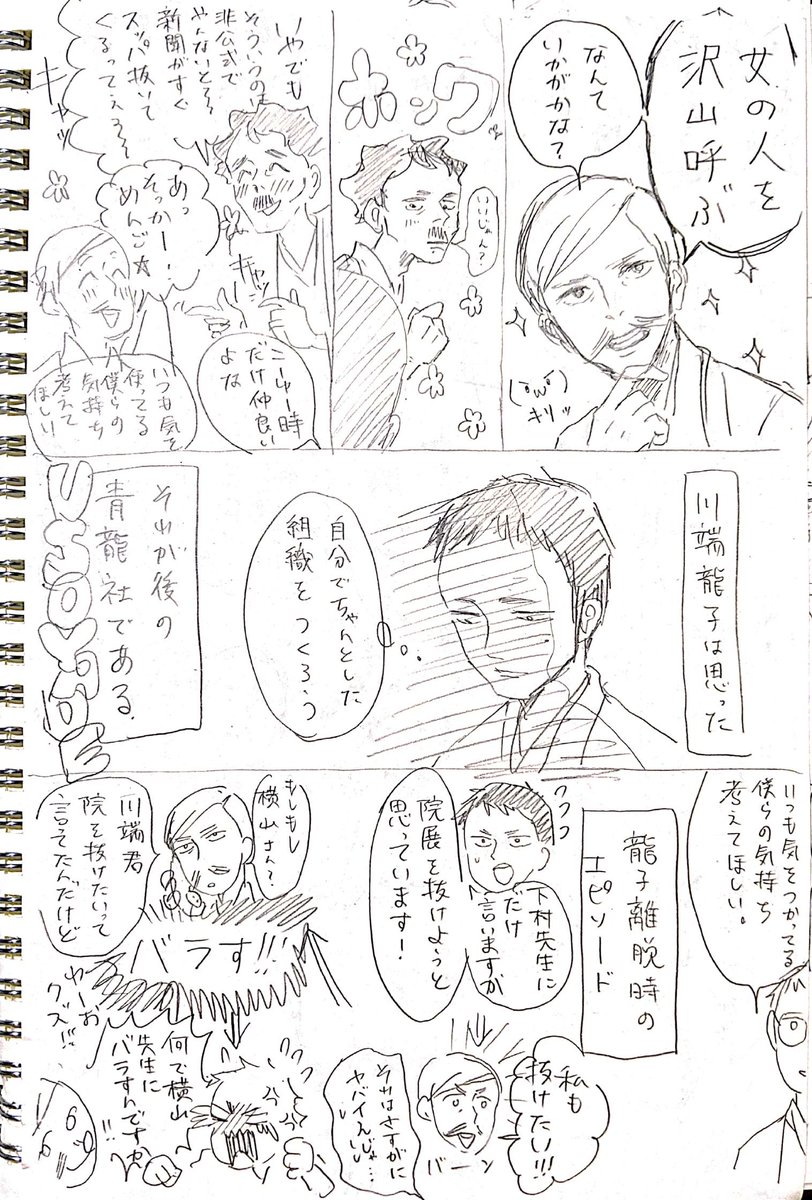 女の人を
沢山呼ぶ
なんて
いかがかな？
キリッ
ホンワ
いいじゃん？
いやでも
そういうのは
非公式で
やんないとさ
新聞がすぐ
スッパ抜いて
くるってえ
キャッ
あっ
そっかー！
めんご☆
キャッ
こーゆー時
だけ仲良い
よな
いつも気を
使ってる
僕らの
気持ち
考えて
ほしい
川端龍子は思った
自分でちゃんとした
組織をつくろう
それが後の
青龍社である.
USOYADE
いつも気をつかってる
僕らの気持ち
考えてほしい。
龍子離脱時の
エピソード
下村先生に
だけ
言いますが
院展を抜けようと
思っています！
もしもし
横山さん？
川端君
院を抜けたいって
言ってたんだけど
バラす!!
私も
抜けたい!!!
バーン
それはさすがに
ヤバイんじゃ…
何で横山
先生に
バラすんですか
!!
クズ!!!